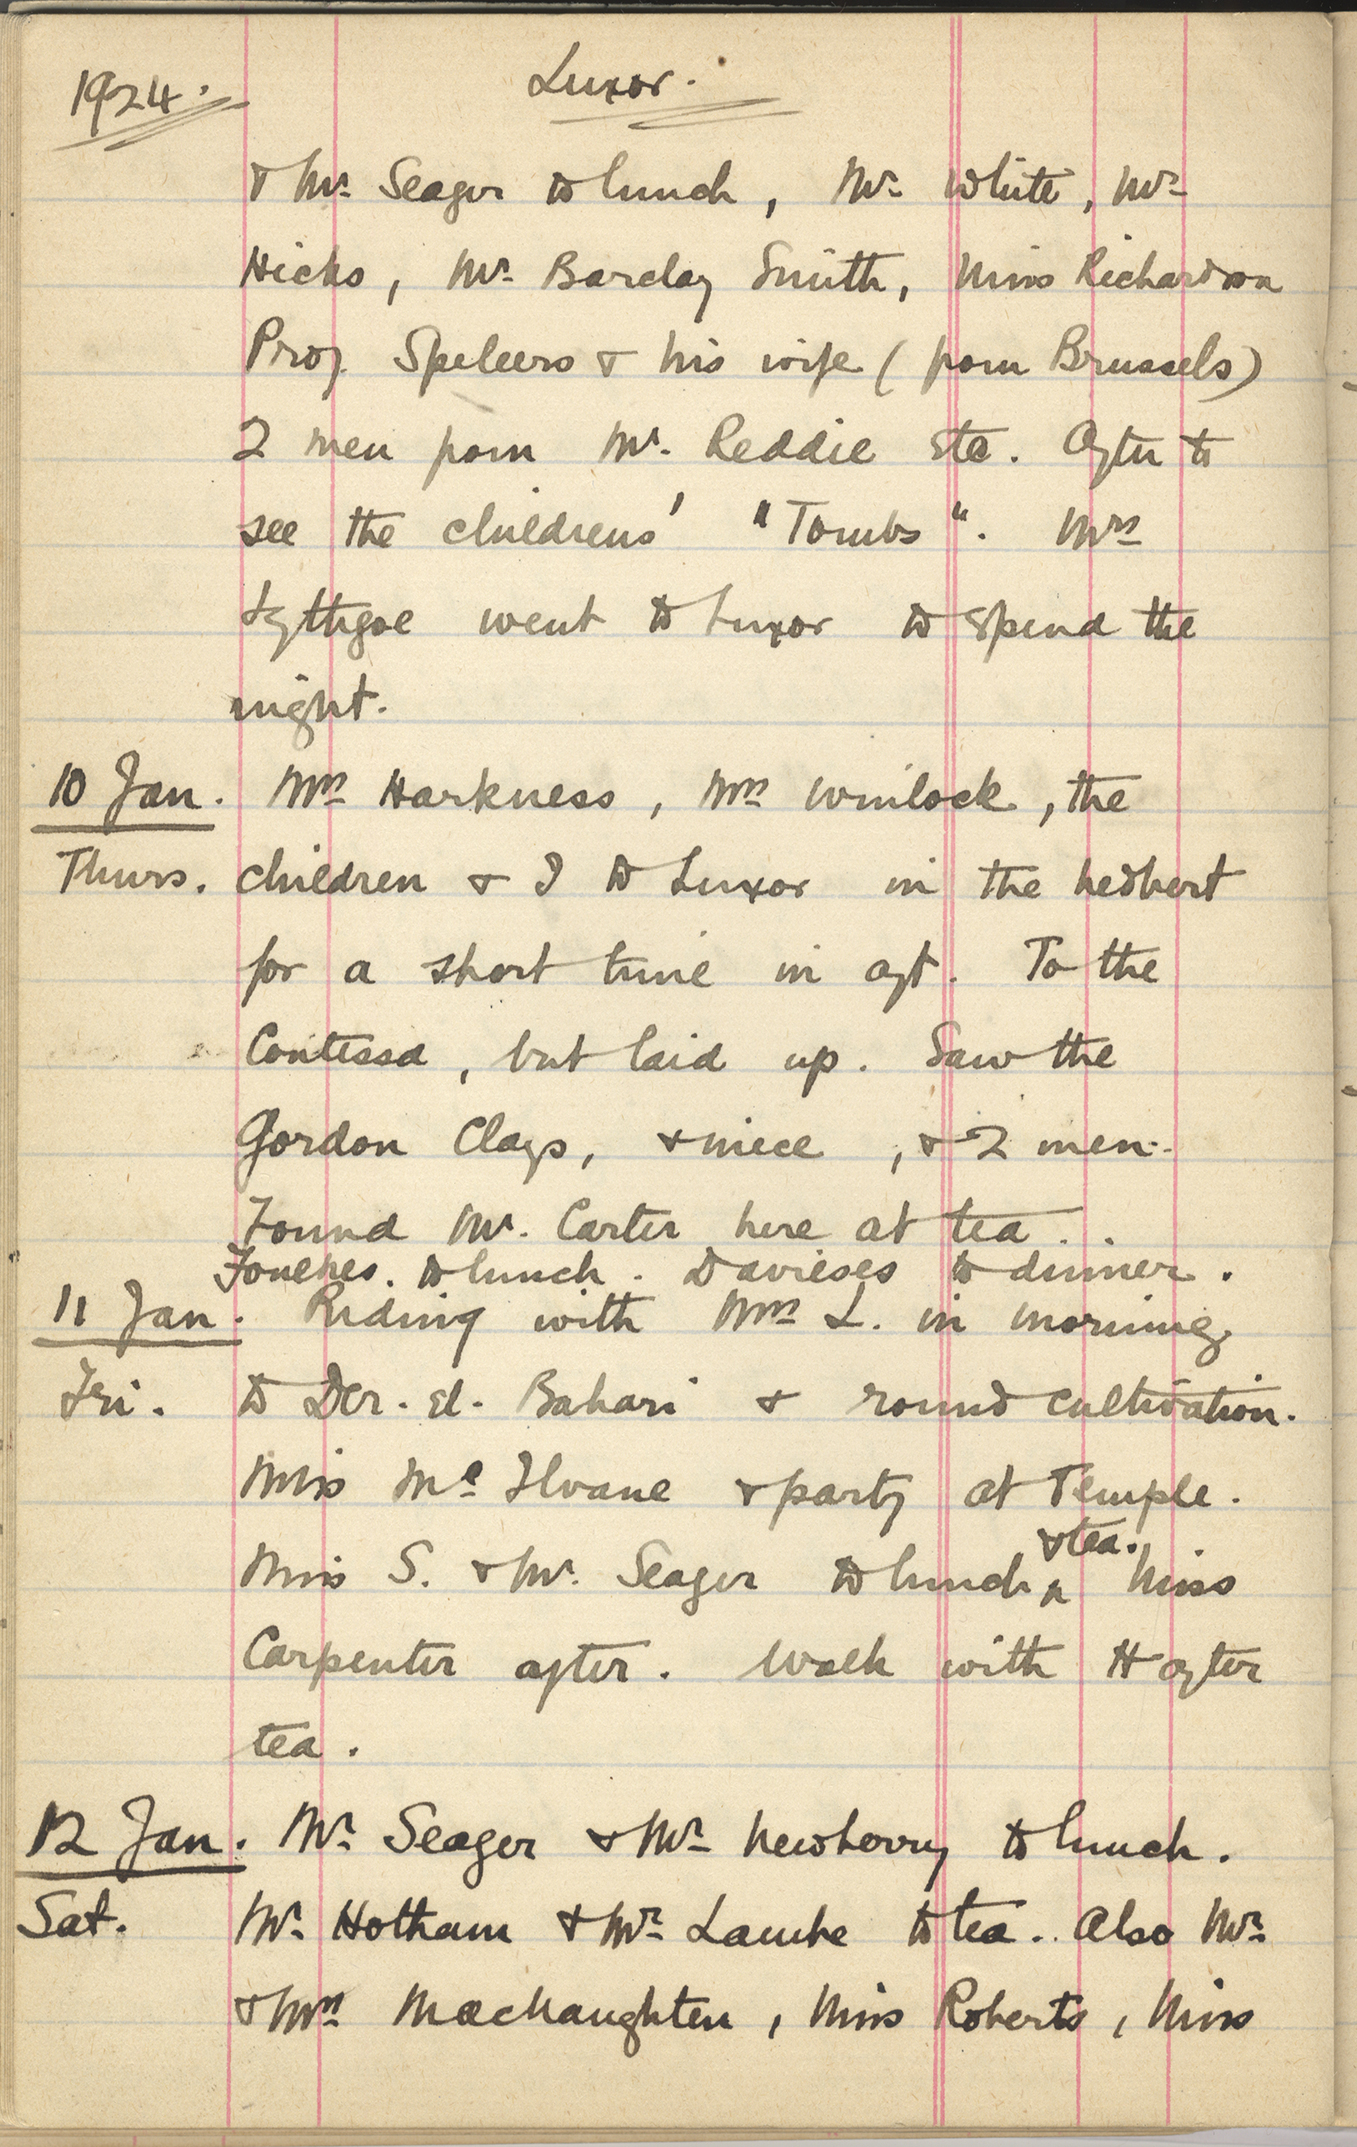 1924.
Luxor.
& Mr. Seager to lunch, Mr. White, Mr.
Hicks, Mr. Barclay Smith, Miss Richardson
Prof. Speleers & his wife (from Brussels)
2 men from Mr. Reddie etc. After to
see the childrens' "Tombs". Mrs
Lythgoe went to Luxor to spend the
night.
10 Jan. Mrs Harkness, Mrs Winlock, the
Thurs. children & I to Luxor in the
for a short time in aft. To the
Contessa, but laid up. Saw the
Gordon Clays, & niece, & 2 men.
Found Mr. Carter here at tea..
to lunch. Davieses to dinner.
11 Jan. Riding with Mrs L. in morning
Fri. to Der. el. Bahari & round cultivation.
Miss Mc Ilvane & party at Temple.
& tea.
Miss S. & Mr. Seager to lunch ^ Miss
Carpenter after. Walk with H after
tea.
12 Jan. Mr. Seager & Mr. Newberry to lunch.
Sat. Mr. Hotham & Mr. Lambe to tea.. Also Mr.
& Mrs MacNaughten, Miss Roberts, Miss